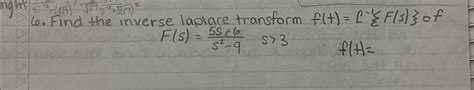 6. Find the inverse laplace transform f(t) = L⁻¹{F(s)} of
F(s) = 5s+6 / s²-9   s>3   f(t)=